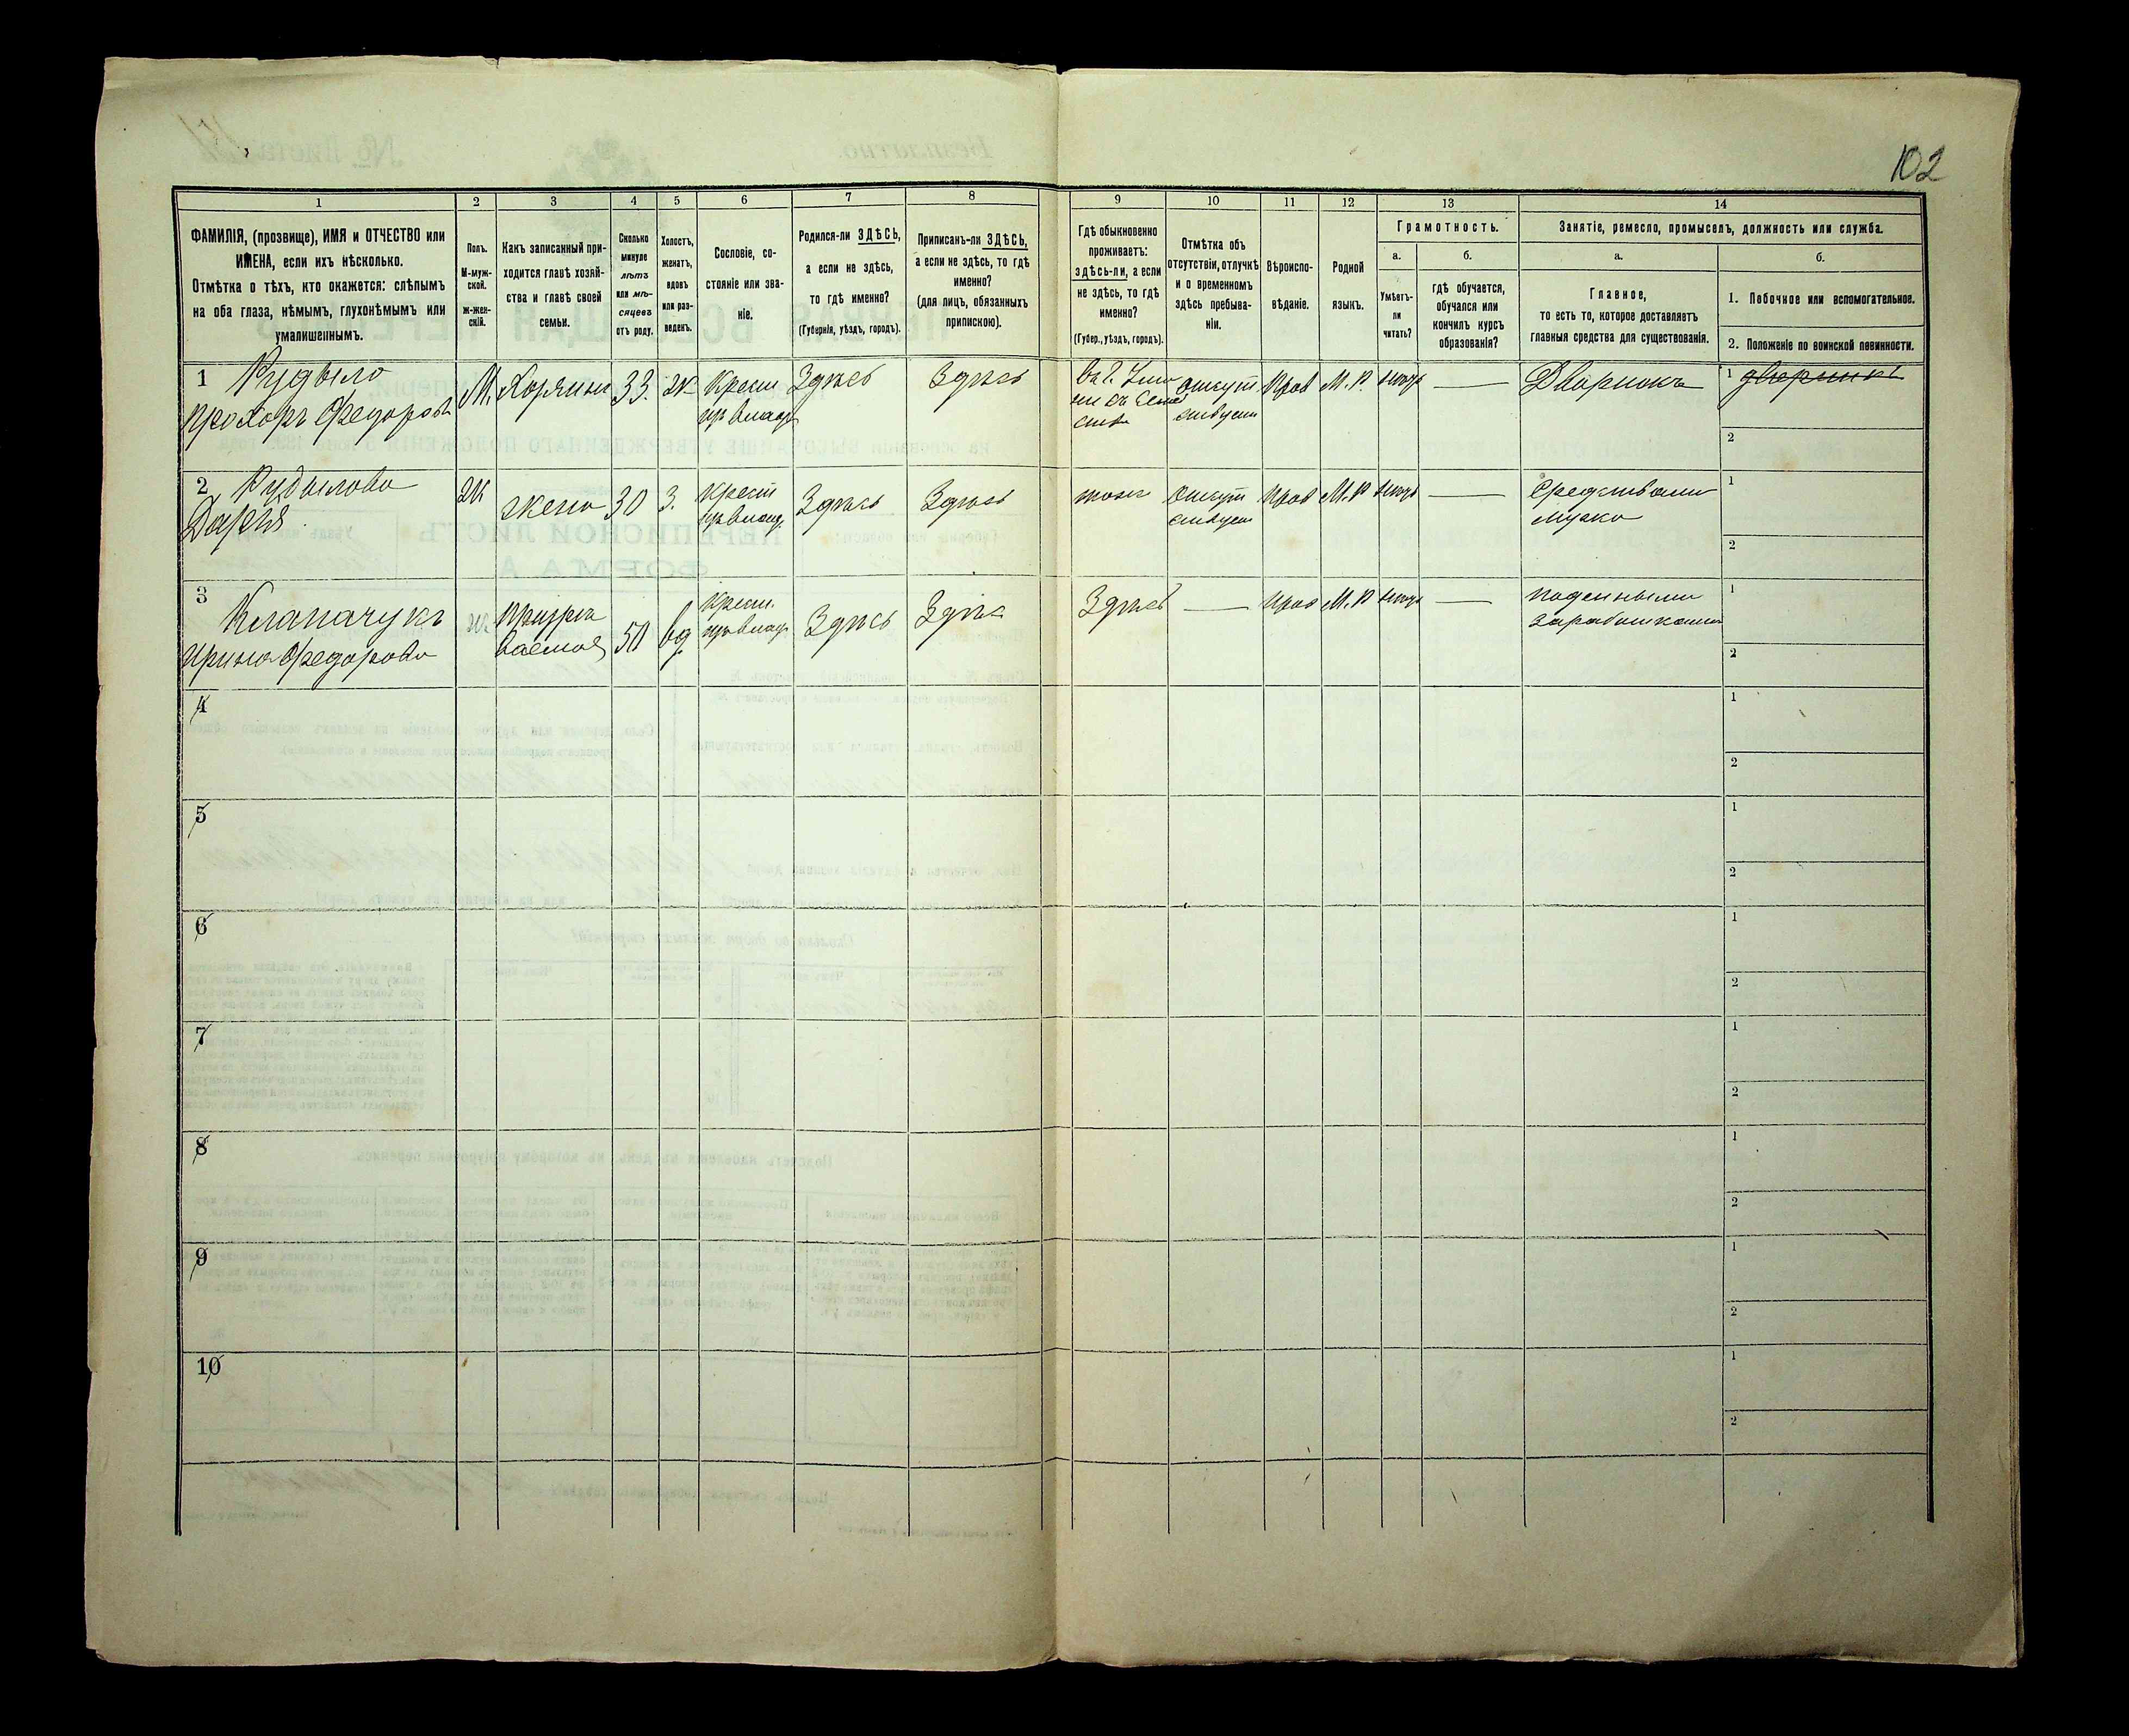 102
1
2
3
4
5
6
7
8
9
10
11
12
13
14
ФАМИЛІЯ, (прозвище), ИМЯ и ОТЧЕСТВО или
ИМЕНА, если ихъ нѣсколько.
Отмѣтка о тѣхъ, кто окажется: слѣпымъ
на оба глаза, нѣмымъ, глухонѣмымъ или
умалишеннымъ.
Полъ.
М-муж-
ской.
ж-жен-
скій.
Какъ записанный при-
ходится главѣ хозяй-
ства и главѣ своей
семьи.
Сколько
минуло
лѣтъ
или мѣ-
сяцевъ
отъ роду.
Холостъ,
женатъ,
вдовъ
или раз-
веденъ.
Сословіе, со-
стояніе или зва-
ніе.
Родился-ли ЗДѢСЬ,
а если не здѣсь,
то гдѣ именно?
(Губернія, уѣздъ, городъ).
Приписанъ-ли ЗДѢСЬ,
а если не здѣсь, то гдѣ
именно?
(для лицъ, обязанныхъ
припискою).
Гдѣ обыкновенно
проживаетъ:
здѣсь-ли, а если
не здѣсь, то гдѣ
именно?
(Губер., уѣздъ, городъ).
Отмѣтка объ
отсутствіи, отлучкѣ
и о временномъ
здѣсь пребыва-
ніи.
Вѣроиспо-
вѣданіе.
Родной
языкъ.
Грамотность.
а.
Умѣетъ-
ли
читать?
б.
гдѣ обучается,
обучался или
кончилъ курсъ
образованія?
Занятіе, ремесло, промыселъ, должность или служба.
а.
Главное,
то есть то, которое доставляетъ
главныя средства для существованія.
б.
1. Побочное или вспомогательное.
2. Положеніе по воинской повинности.
1 Рудыло
Прохоръ Федоровъ
М.
Хозяинъ
33.
ж
Крест
изъ влад
Здѣсь
Здѣсь
отсут
ствуетъ
Прав
М. Р.
Дворникъ
1 дворникъ
2
2 Рудылова
Дарья
Ж
жена
30
З.
Крест
изъ влад.
Здѣсь
Здѣсь
тоже
отсут
ствуетъ
Прав
М. Р
Средствами
мужа
1
2
3 Клапачукъ
Ирина Федорова
ж
приужи
ваемая
50
вд.
Крест.
изъ влад
Здѣсь
Здѣсь
Здѣсь
Прав
М. Р
поденными
заработками
1
2
4
1
2
5
1
2
6
1
2
7
1
2
8
1
2
9
1
2
10
1
2